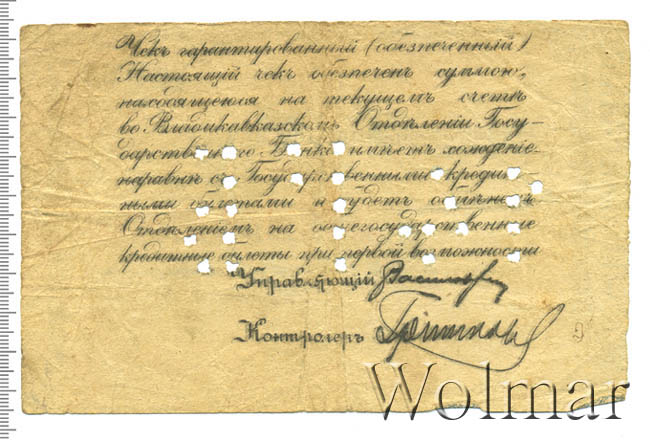 Чекъ гарантированный (обезпеченный)
Настоящій чекъ обезпечен суммою,
находящеюся на текущемъ счетѣ
во Владикавказскомъ Отдѣленіи Госу-
дарственного Банка имѣетъ хожденіе
наравнѣ съ Государственными кредит-
ными билетами и будетъ обмѣненъ
Отдѣленіемъ на общегосударственные
кредитные билеты при первой возможности
Управляющій
Контролеръ
Wolmar